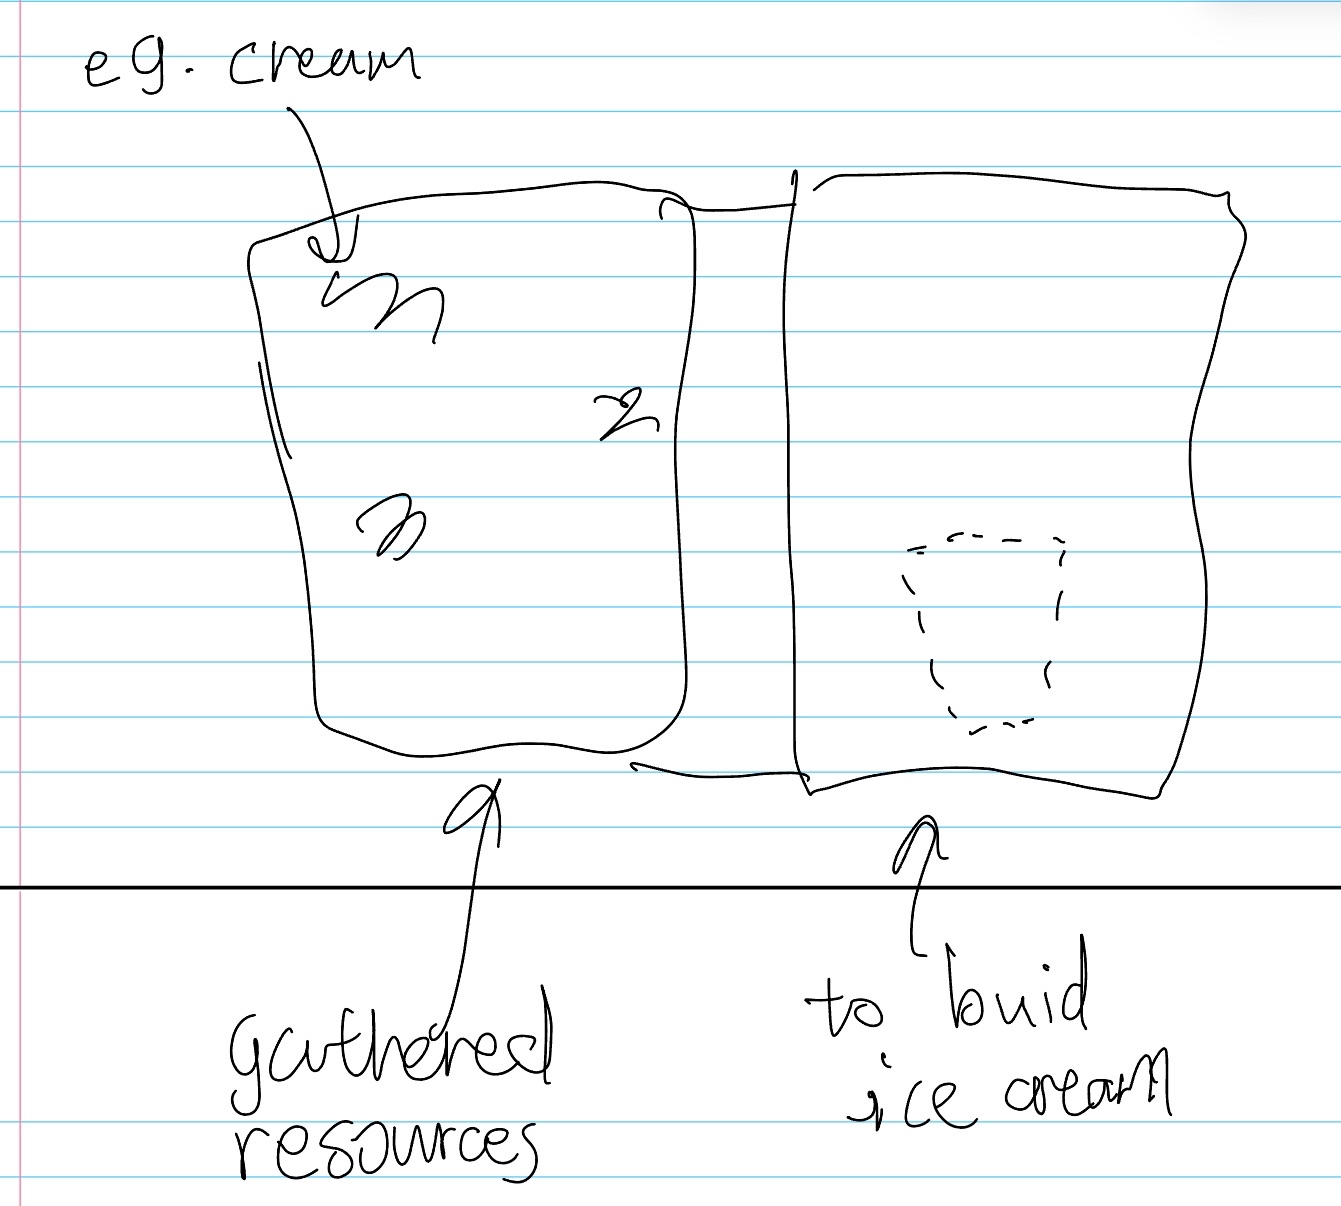 eg. cream
gathered
resources
to buid
ice cream